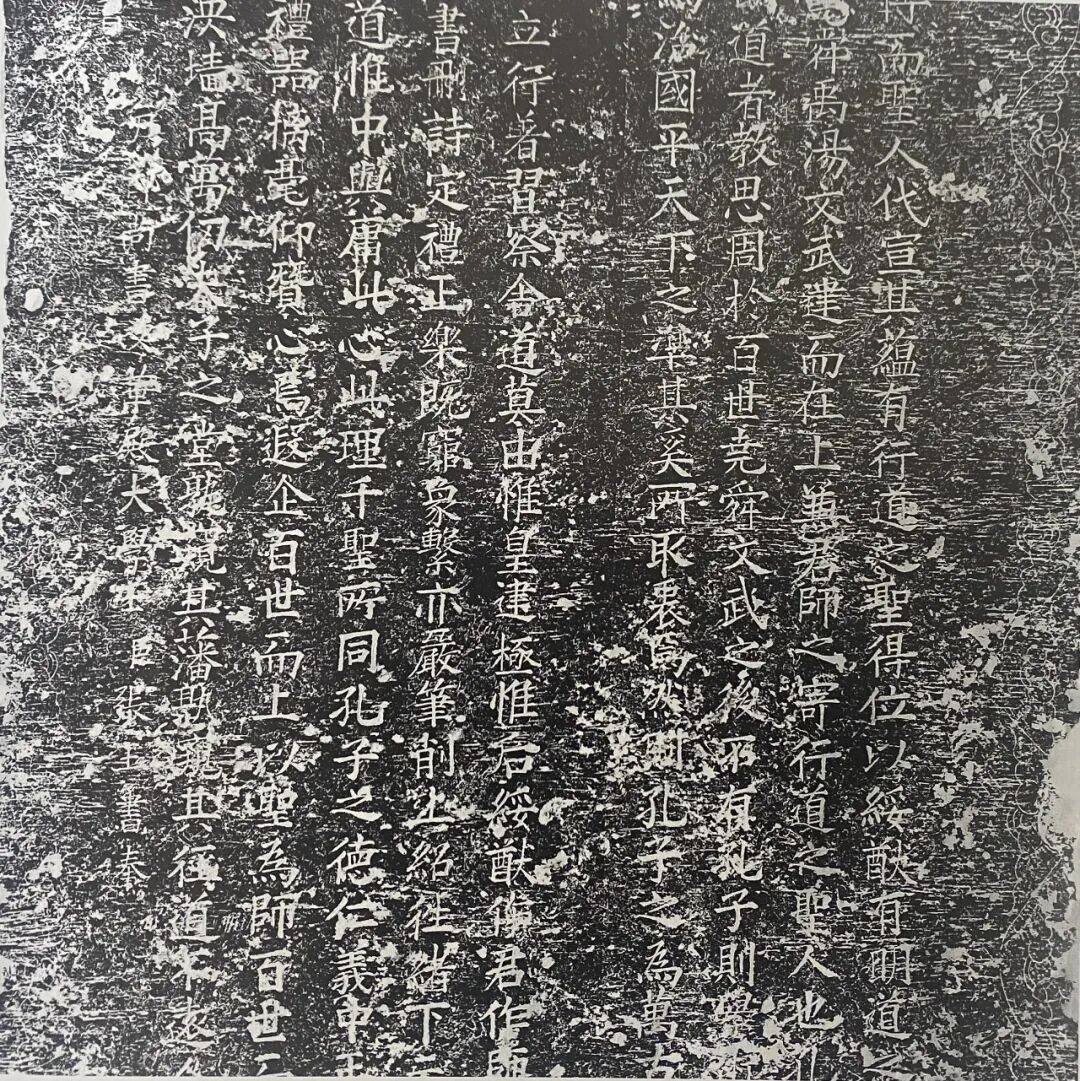 行而聖人代宣其蘊有行道之聖得位以綏猷有明道之
舜禹湯文武達而在上兼君師之寄行道之聖人也孔
道者教思周於百世堯舜文武之後不有孔子則學術
治國平天下之準其奚所取衷焉然則孔子之為萬古
立行著習察舍道莫由惟皇建極惟后綏猷作君作師
書刪詩定禮正樂既窮象繫亦嚴筆削上紹往緒下
道惟中與庸此心此理千聖所同孔子之德仁義中正
禮器摛毫仰贊心焉遐企百世而上以聖為師百世而
墻高萬仞夫子之堂孰窺其藩孰窺其徑道不遠人
部尚書文華殿大學士臣張玉書奉